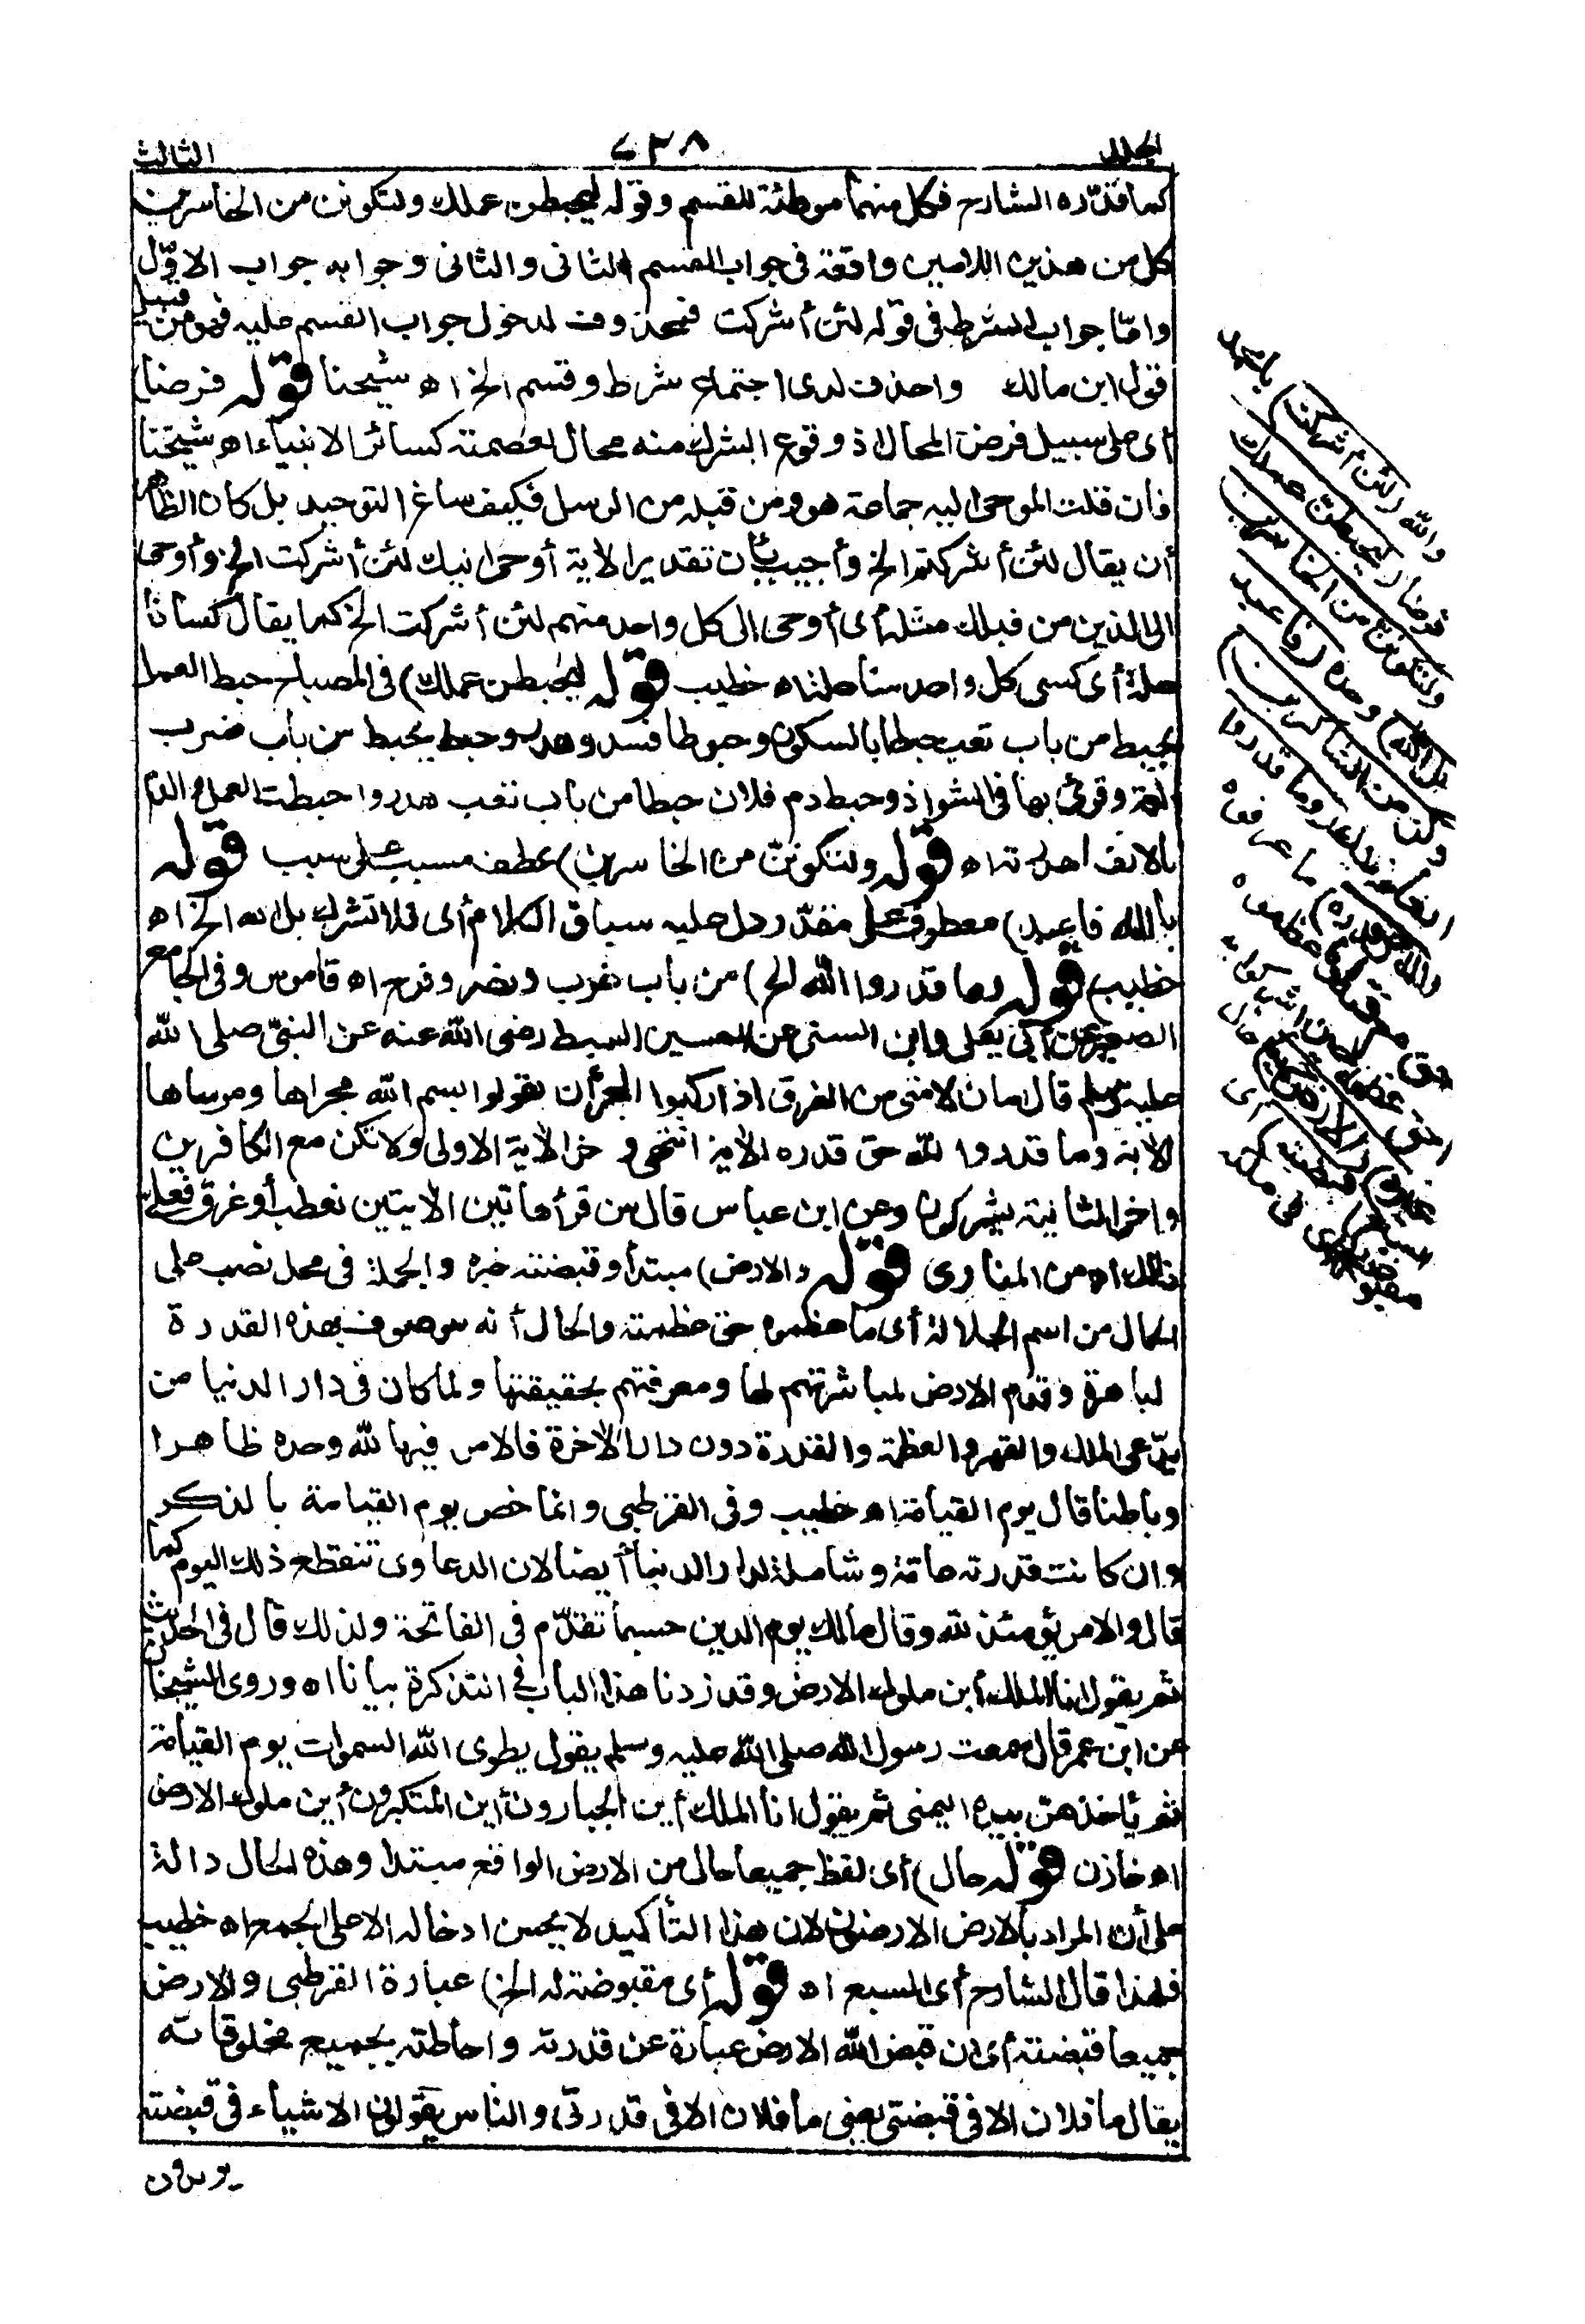 الجلد
٦٣٨
الثالث
كما قدّره الشارح فكل منهما موطئة للقسم وقوله ليحبطن عملك ولتكونن من الخاسرين
كل من هذين اللامين واقعة فى جواب القسم الثانى والثانى وجوابه جواب الاوّل
وامّا جواب الشرط فى قوله لئن أشركت فمحذوف لدخول جواب القسم عليه فهو من قبيل
قول ابن مالك واحذف لدى اجتماع شرط وقسم الخ اه شيخنا قوله فرضا)
أى على سبيل فرض المحال اذ وقوع الشرك منه محال لعصمته كسائر الانبياء اه شيخنا
فان قلت الموحى اليه جماعة هو ومن قبله من الرسل فكيف ساغ التوحيد بل كان الظاهر
أن يقال لئن أشركتم الخ وأجيب بأن تقدير الاية أوحى اليك لئن أشركت الخ وأوحى
الى الذين من قبلك مثله أى أوحى الى كل واحد منهم لئن أشركت الخ كما يقال كسانا
حلة أى كسى كل واحد منا حلة اه خطيب قوله ليحبطن عملك) فى المصباح حبط العمل
يحبط من باب تعب حبطا بالسكون وحبوطا فسد وهدر وحبط يحبط من باب ضرب
لغة وقرئ بها فى الشواذ وحبط دم فلان حبطا من باب تعب هدر واحبطت العمل والدم
بالالف اهدرته اه قوله ولتكوننّ من الخاسرين) عطف مسبب على سبب قوله
بل الله فاعبد) معطوف على مقدّر دل عليه سياق الكلام أى فلا تشرك بل الله الخ اه
خطيب قوله وما قدروا الله الخ) من باب ضرب ونصر وفرح اه قاموس وفى الجامع
الصغير عن أبى يعلى وابن السنى عن الحسين السبط رضى الله عنه عن النبىّ صلى الله
عليه وسلم قال امان لامتى من الغرق اذا ركبوا البحر أن يقولوا بسم الله مجراها ومرساها
الاية وما قدروا الله حق قدره الاية انتهى واخر الاية الاولى ولا تكن مع الكافرين
واخر الثانية يشركون وعن ابن عباس قال من قرأ هاتين الايتين فعطب أو غرق فعلىّ
ذلك اه من المناوى قوله والارض) مبتدأ وقبضته خبره والجملة فى محل نصب على
الحال من اسم الجلالة أى ما عظموه حق عظمته والحال أنه موصوف بهذه القدرة
لباهرة وقدم الارض لمباشرتهم لها ومعرفتهم بحقيقتها ولما كان فى دار الدنيا من
يدّعى الملك والقهر والعظمة والقدرة دون دار الاخرة فالامر فيها لله وحده ظاهرا
وباطنا قال يوم القيامة اه خطيب وفى القرطبى وانما خص يوم القيامة بالذكر
وان كانت قدرته عامّة وشاملة لدار الدنيا أيضا لان الدعاوى تنقطع ذلك اليوم كما
قال والامر يومئذ لله وقال مالك يوم الدين حسبما تقدّم فى الفاتحة ولذلك قال فى الحديث
ثم يقول انا الملك أين ملوك الارض وقد زدنا هذا الباب فى التذكرة بيانا اه وروى الشيخان
عن ابن عمر قال سمعت رسول الله صلى الله عليه وسلم يقول يطوى الله السموات يوم القيامة
ثم يأخذهنّ بيده اليمنى ثم يقول انا الملك أين الجبارون أين المتكبرون أين ملوك الارض
اه خازن قوله حال) أى لفظ جميعا حال من الارض الواقع مبتدا وهذه الحال دالة
على أن المراد بالارض الارضون لان هذا التأكيد لا يحسن ادخاله الا على الجمع اه خطيب
فلهذا قال الشارح أى السبع اه قوله أى مقبوضة له الخ) عبارة القرطبى والارض
جميعا قبضته أى ان قبض الله الارض عبارة عن قدرته واحاطته بجميع مخلوقاته
يقال ما فلان الا فى قبضتى يعنى ما فلان الا فى قدرتى والناس يقولون الاشياء فى قبضته
والله (لئن أشركت) يا محمد
فرضا (ليحبطن عملك
ولتكونن من الخاسرين
بل الله) وحده (فاعبد
وكن من الشاكرين)
انعامه عليك وما قدروا
الله حق قدره) ما عرفوه
حق معرفته أو ما عظموه
حق عظمته حين أشركوا به
غيره (والارض جميعا) حال
أى السبع (قبضته) أى
مقبوضة